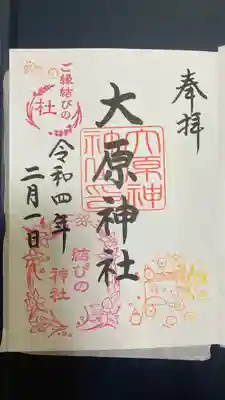 奉拝
大原神社
令和四年
二月一日
ご縁結びの
社
結びの
神社
大原神